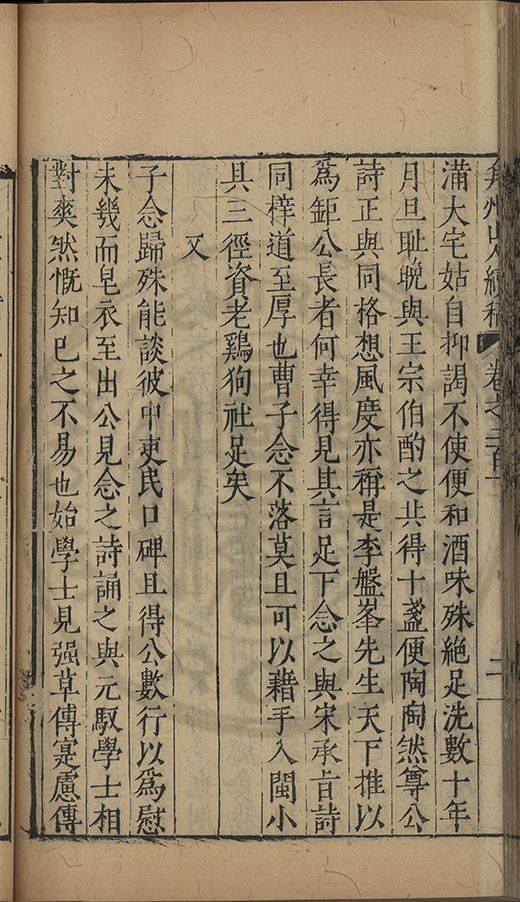 弇州山人續稿 卷之二百一 二
滿大宅姑自抑謁不使便和酒味殊絶足洗數十年
月旦耻晚與王宗伯酌之共得十盞便陶陶然尊公
詩正與同格想風度亦稱是李盤峯先生天下推以
爲鉅公長者何幸得見其言足下念之與宋承旨詩
同梓道至厚也曹子念不落莫且可以藉手入閩小
具三徑資老鷄狗社足矣
又
子念歸殊能談彼中吏民口碑且得公數行以爲慰
未幾而皂衣至出公見念之詩誦之與元馭學士相
對爽然慨知已之不易也始學士見强草傳寔慮傳